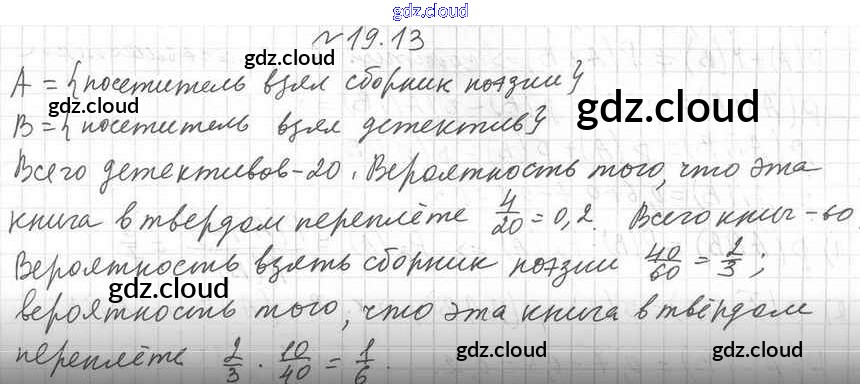 gdz.cloud
№ 19.13
gdz.cloud
A = {посетитель взял сборник поэзии}
gdz.cloud
gdz.cloud
B = {посетитель взял детектив}
Всего детективов - 20. Вероятность того, что эта
gdz.cloud
книга в твердом переплёте 4/20 = 0,2. Всего книг - 60.
gdz.cloud
Вероятность взять сборник поэзии 40/60 = 2/3;
gdz.cloud
вероятность того, что эта книга в твёрдом
переплёте 2/3 · 10/40 = 1/6.
gdz.cloud
gdz.cloud